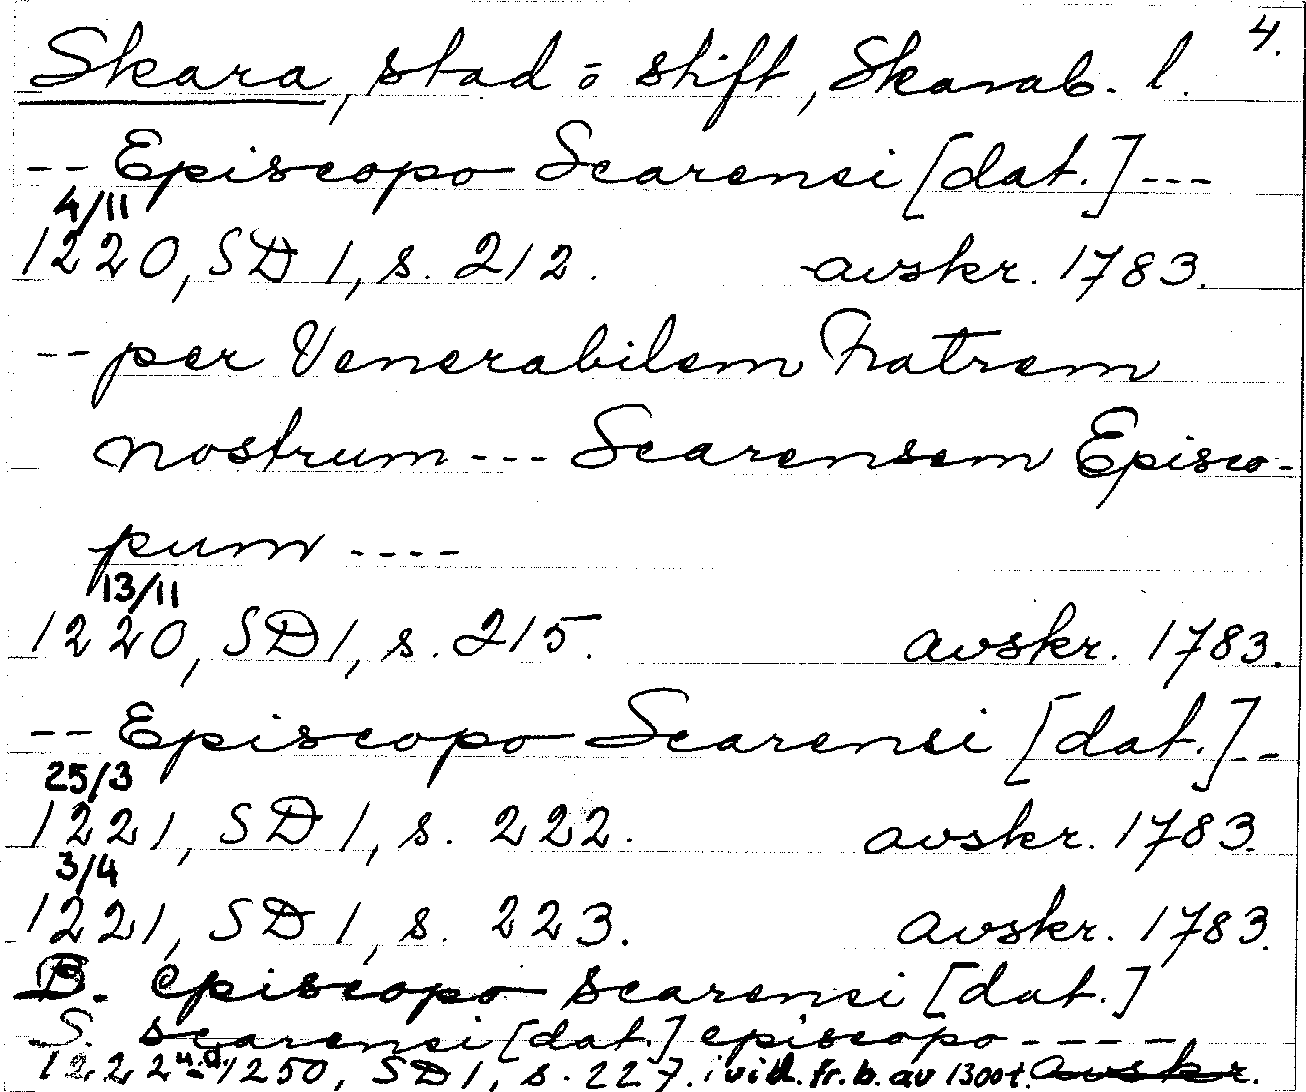 4.
Skara, stad o stift, Skarab. l.
-- Episcopo Scarensi [dat.] ---
4/11
1220, SD 1, s. 212. avskr. 1783.
-- per Venerabilem Fratrem
nostrum --- Scarensem Episco-
pum ----
13/11
1220, SD 1, s. 215. avskr. 1783.
-- Episcopo Scarensi [dat.] --
25/3
1221, SD 1, s. 222. avskr. 1783.
3/4
1221, SD 1, s. 223. avskr. 1783.
B. episcopo scarensi [dat.]
S. scarensi [dat.] episcopo -----
1222 u.d., 1250, SD 1, s. 227. i vid. fr. b. av 1300 t. avskr.